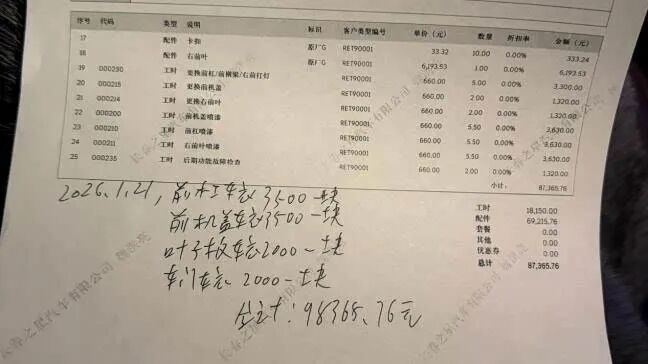 序号 代码 类型 说明 标识 客户类型编号 单价（元） 数量 折扣率 金额（元）
17 配件 卡扣 原厂G RET90001 33.32 10.00 0.00% 333.24
18 配件 右前叶 原厂G RET90001 6,193.53 1.00 0.00% 6,193.53
19 000230 工时 更换前杠/前横梁/右前打灯 RET90001 660.00 5.00 0.00% 3,300.00
20 000215 工时 更换前机盖 RET90001 660.00 2.00 0.00% 1,320.00
21 000214 工时 更换右前叶 RET90001 660.00 2.00 0.00% 1,320.00
22 000200 工时 前机盖喷漆 RET90001 660.00 5.50 0.00% 3,630.00
23 000210 工时 前杠喷漆 RET90001 660.00 5.50 0.00% 3,630.00
24 000211 工时 右前叶喷漆 RET90001 660.00 5.50 0.00% 3,630.00
25 000235 工时 后期功能故障检查 RET90001 660.00 2.00 0.00% 1,320.00
小计： 87,365.76
工时 18,150.00
配件 69,215.76
套餐 0.00
其他 0.00
优惠券 0.00
总计 87,365.76
2026.1.21，前杠车衣3500一块
前机盖车衣3500一块
叶子板车衣2000一块
车门车衣2000一块
合计：98365.76元
长春之星汽车有限公司